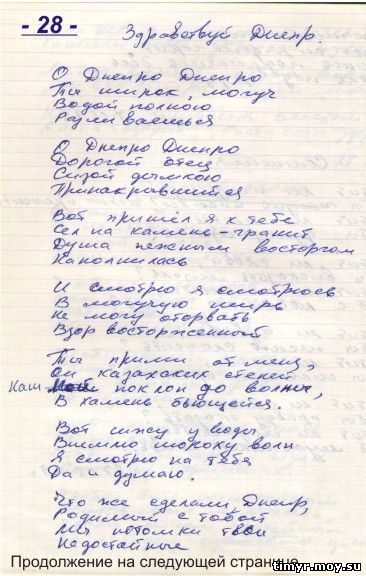 - 28 -
Здравствуй Днепр.
О Днепро Днепро
Ты широк, могуч
Водой полною
Разливаешься
О Днепро Днепро
Дорогой отец
Сизой дымкою
Принакрывшийся
Вот пришёл я к тебе
Сел на камень-гранит
Душа нежным восторгом
Наполнилась
И смотрю я смотрюсь
В могучую ширь
Не могу оторвать
Взор восторженный
Ты прими от меня,
От казахских степей
Наш поклон до волны,
В камень бьющейся.
Вот сижу у воды
Внемлю шороху волн
Я смотрю на тебя
Да и думаю.
Что же сделали, Днепр,
Родимый с тобой
Мы потомки твои
Недостойные
Продолжение на следующей странице
timyr.moy.su